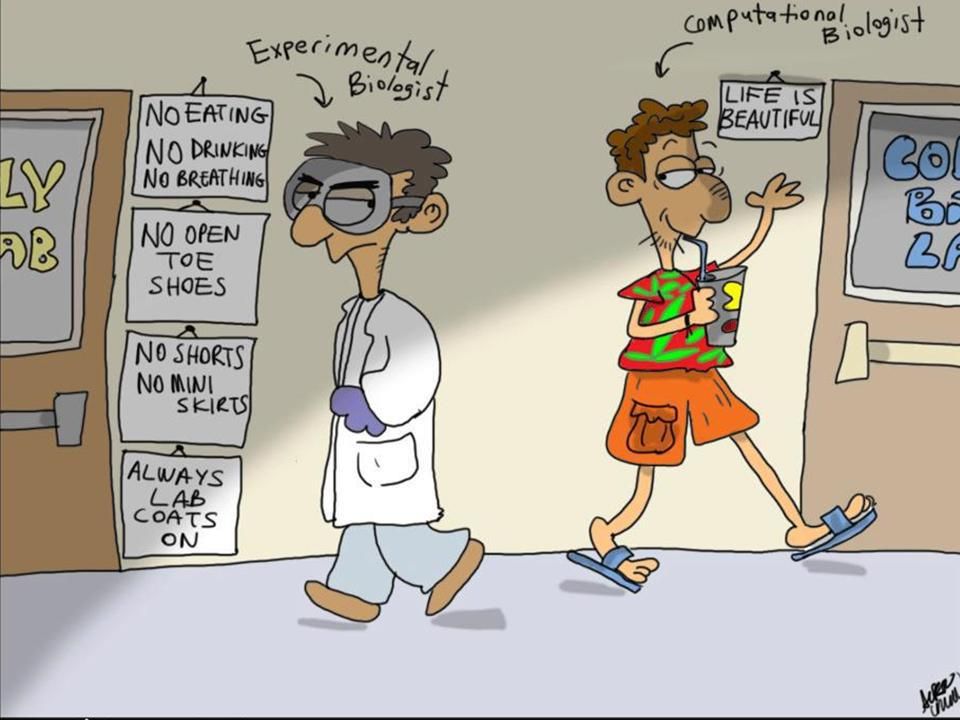 Experimental
Biologist
Computational
Biologist
NO EATING
NO DRINKING
NO BREATHING
NO OPEN
TOE
SHOES
NO SHORTS
NO MINI
SKIRTS
ALWAYS
LAB
COATS
ON
LIFE IS
BEAUTIFUL